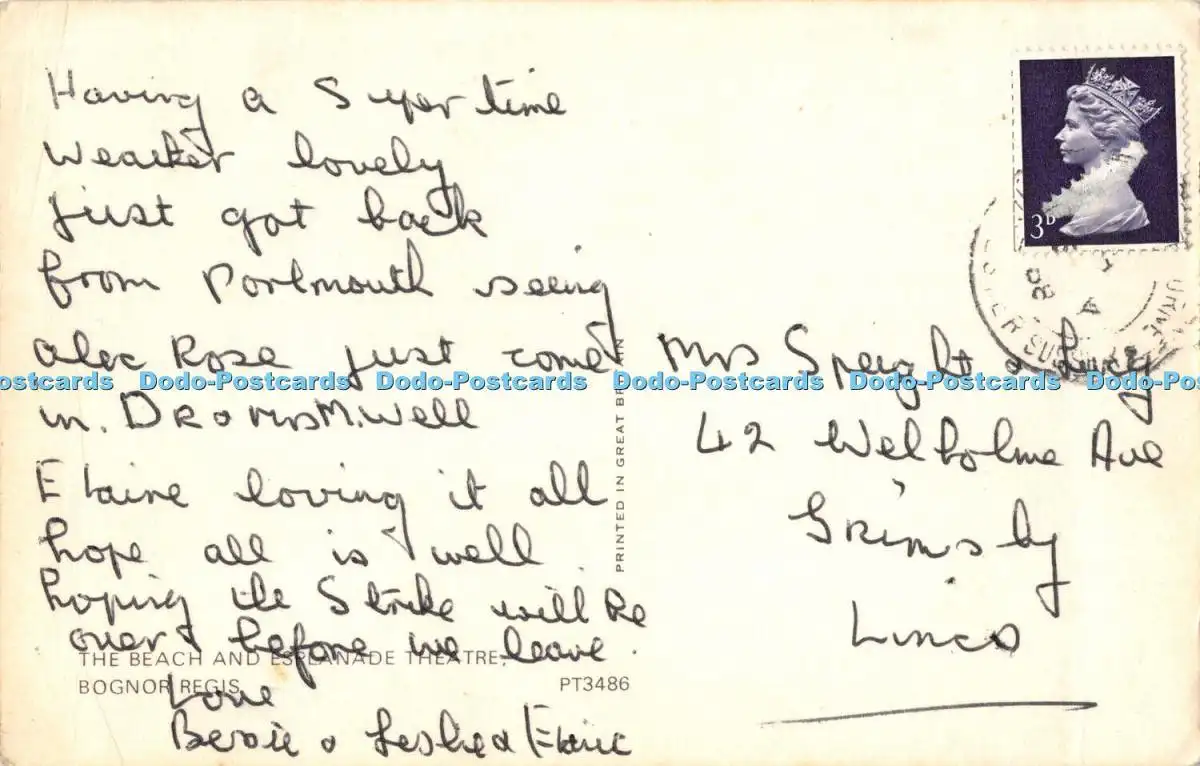 Having a Super time
Weather lovely
just got back
from Portmouth seeing
alec Rose just come
in. DR & Mrs M. Well
Elaine loving it all
hope all is well
hoping the Strike will be
over before we leave.
Love
Bessie & Leslie & Elaine
THE BEACH AND ESPLANADE THEATRE,
BOGNOR REGIS
PT3486
PRINTED IN GREAT BRITAIN
3D
Mrs Speight & Lucy
42 Welholme Ave
Grimsby
Lincs
Dodo-Postcards Dodo-Postcards Dodo-Postcards Dodo-Postcards Dodo-Postcards